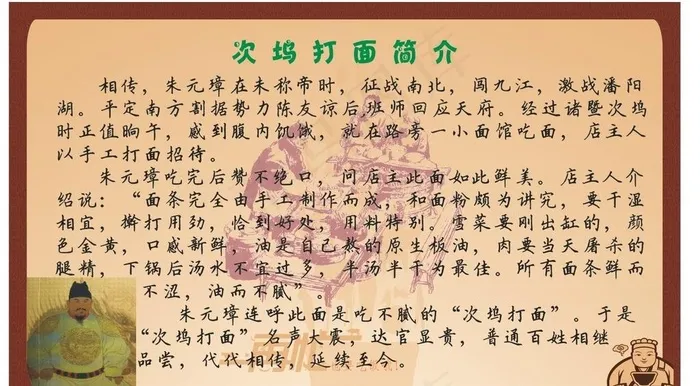 次坞打面简介
相传，朱元璋在未称帝时，征战南北，闯九江，激战潘阳
湖。平定南方割据势力陈友谅后班师回应天府。经过诸暨次坞
时正值晌午，感到腹内饥饿，就在路旁一小面馆吃面，店主人
以手工打面招待。
朱元璋吃完后赞不绝口，问店主此面如此鲜美。店主人介
绍说：“面条完全由手工制作而成，和面粉颇为讲究，要干湿
相宜，擀打用劲，恰到好处，用料特别。雪菜要刚出缸的，颜
色金黄，口感新鲜，油是自己熬的原生板油，肉要当天屠杀的
腿精，下锅后汤水不宜过多，半汤半干为最佳。所有面条鲜而
不涩，油而不腻”。
朱元璋连呼此面是吃不腻的“次坞打面”。于是
“次坞打面”名声大震，达官显贵，普通百姓相继
品尝，代代相传，延续至今。